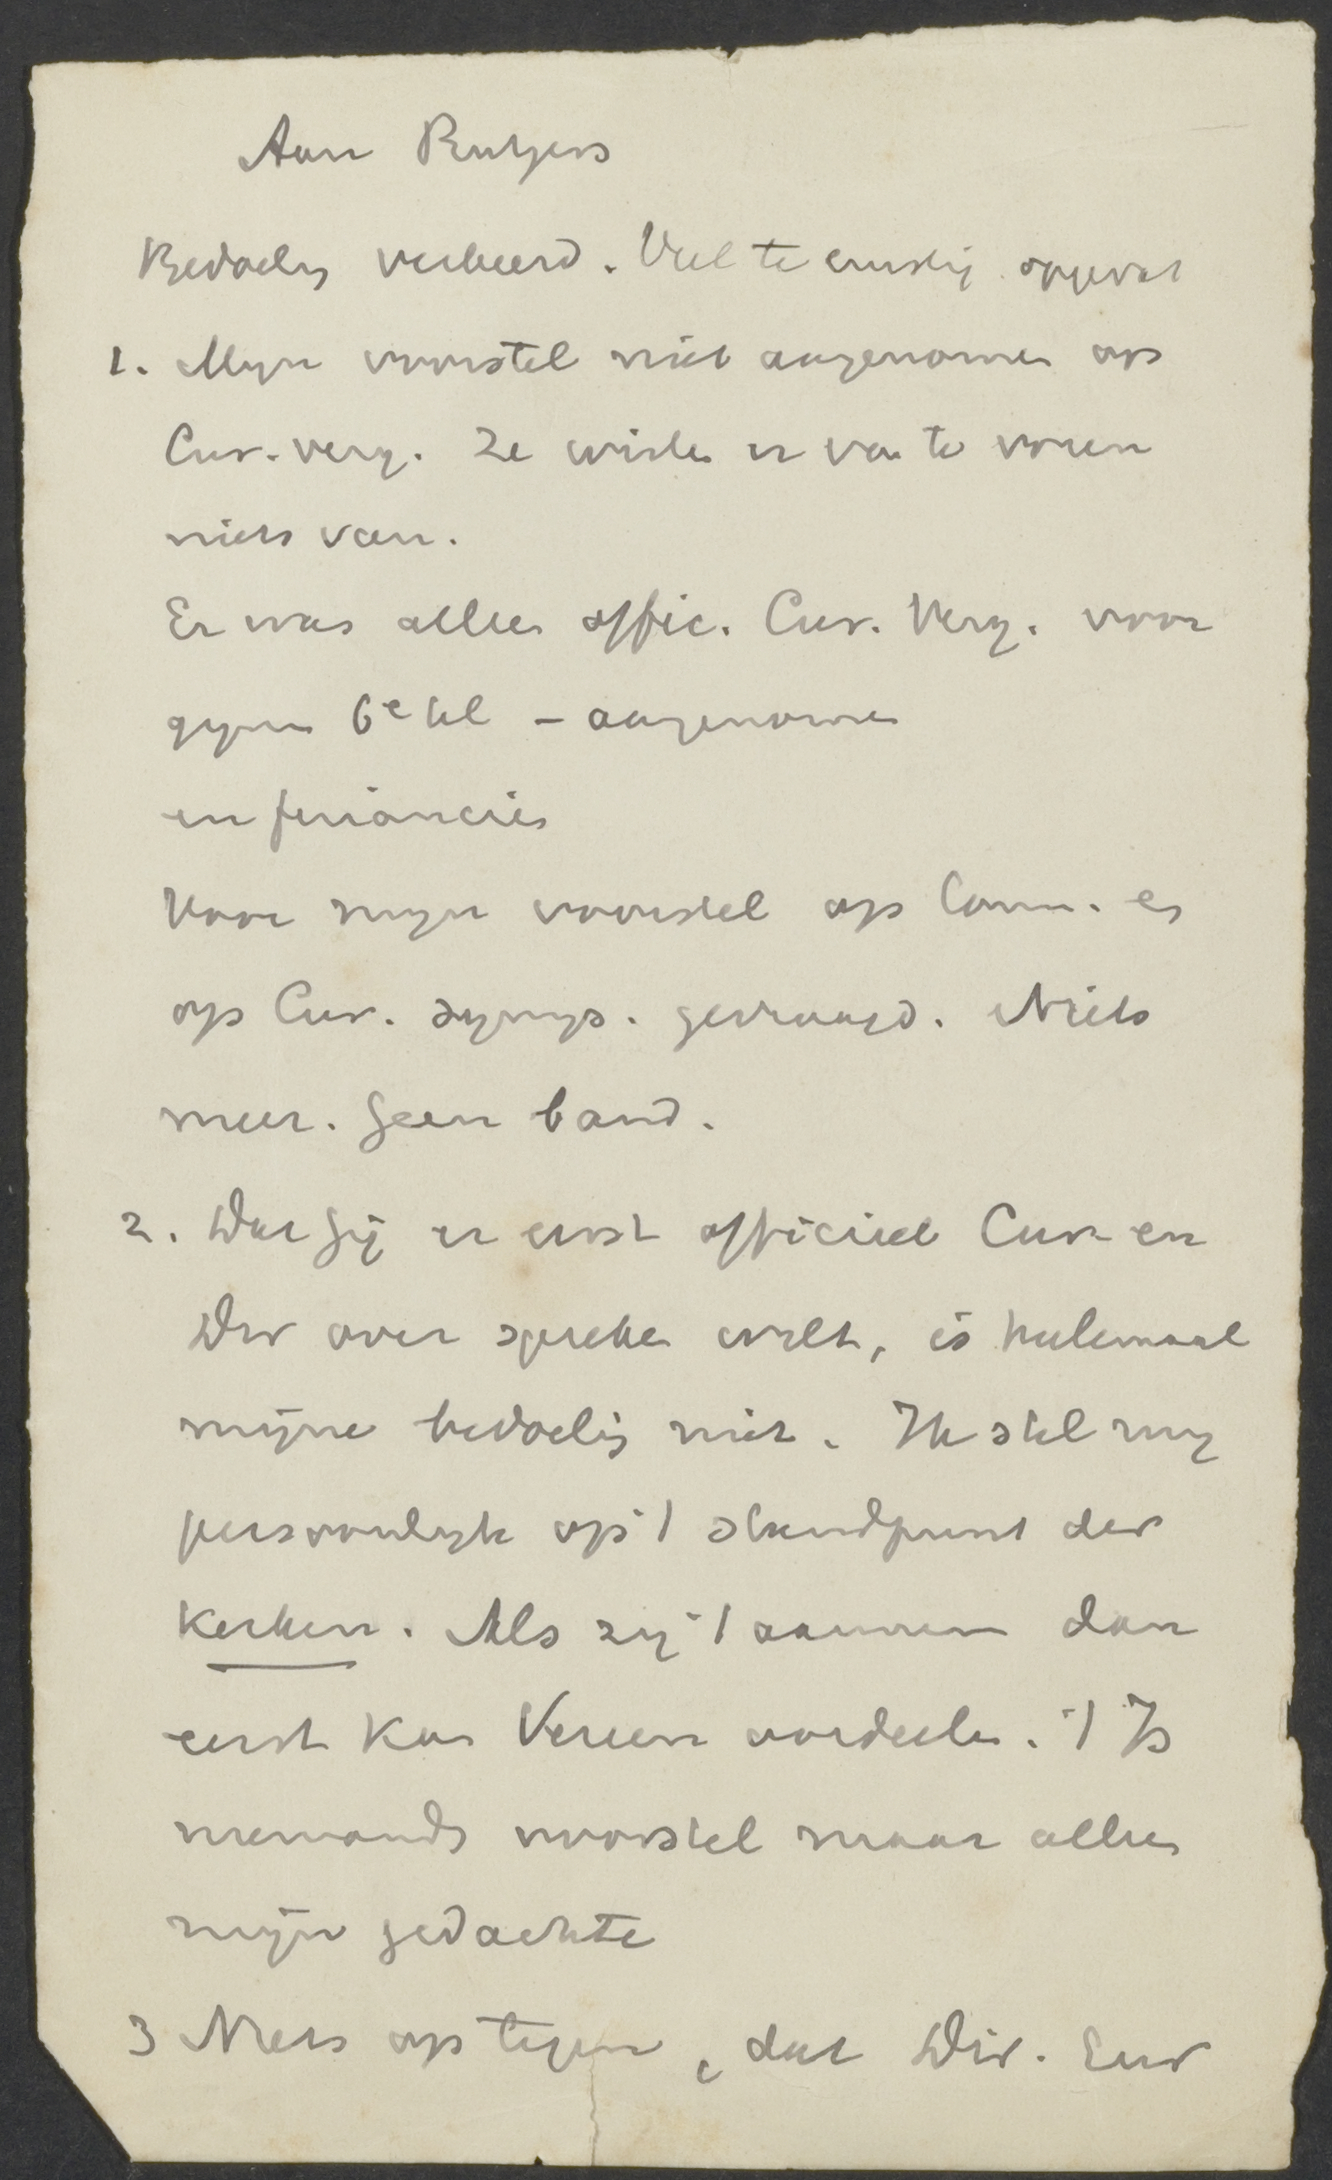 Aan Rutgers
Bedoeling verkeerd. Veel te ernstig opgevat
1. Mijn voorstel niet aangenomen op
Cur. verg. Ze wisten er van te voren
niets van.
Er was alleen offic. Cur. Verg. voor
gymn 6e kl - aangenomen
en financiën
Voor mijn voorstel op Comm. en
op Cur. symp. gevraagd. Niets
meer. Geen band.
2. Dat gij er eerst officieel Cur en
Dir over spreken wilt, is heelemaal
mijne bedoeling niet. Ik stel mij
persoonlijk op 't standpunt der
Kerken. Als zij 't aannemen dan
eerst kan Vereen oordeelen. 't Is
niemands voorstel maar alleen
mijn gedachte
3 Niets op tegen, dat Dir. Cur